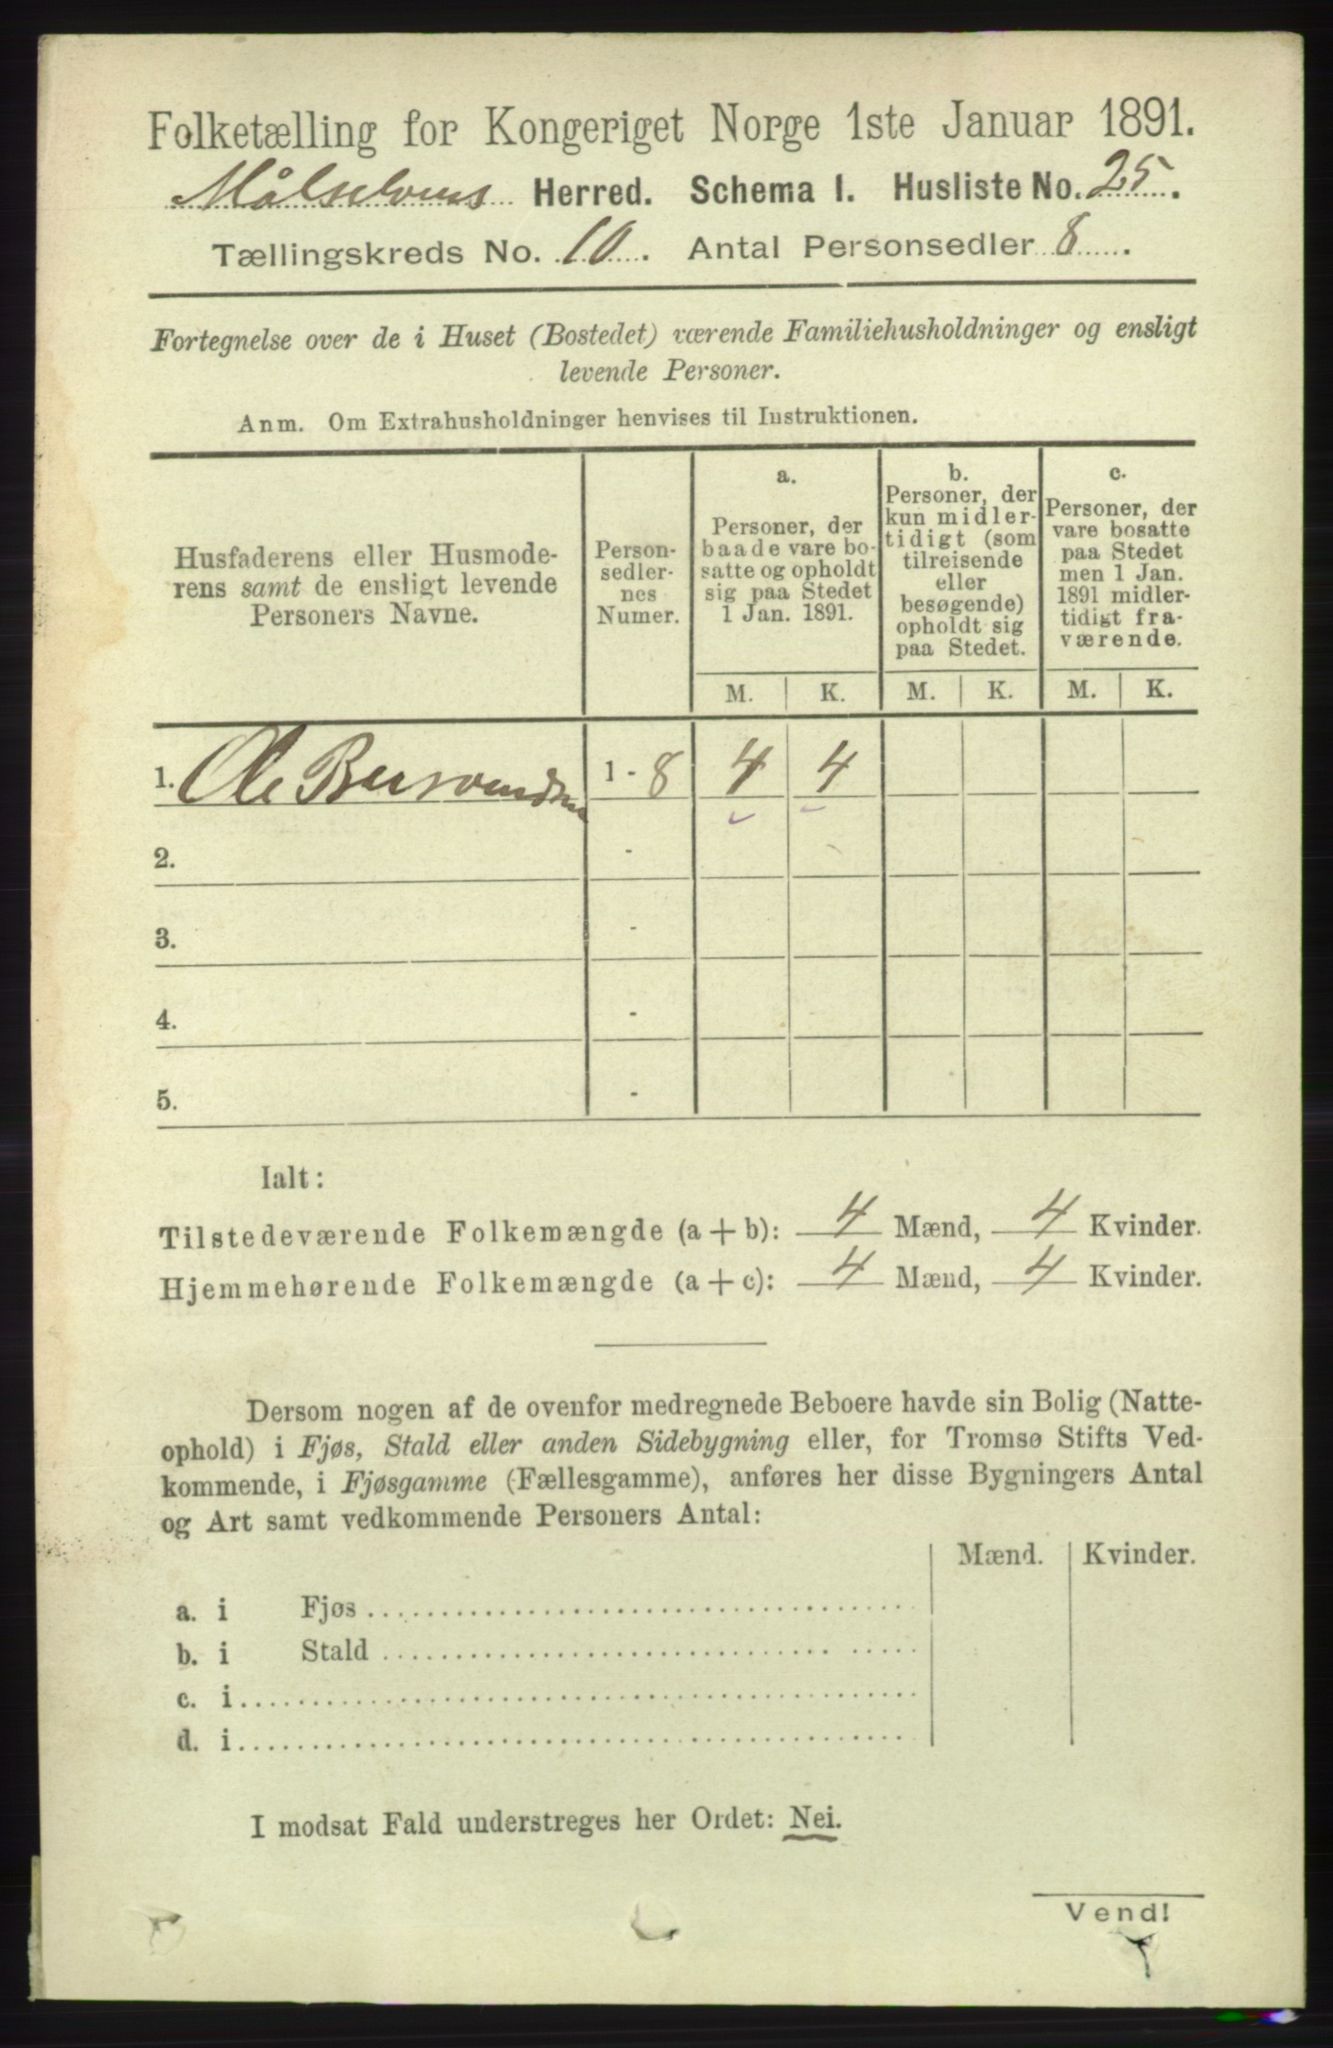 Folketælling for Kongeriget Norge 1ste Januar 1891.
Målselvens Herred. Schema I. Husliste No. 25.
Tællingskreds No. 10. Antal Personsedler 8.
Fortegnelse over de i Huset (Bostedet) værende Familiehusholdninger og ensligt
levende Personer.
Anm. Om Extrahusholdninger henvises til Instruktionen.
Husfaderens eller Husmode-
rens samt de ensligt levende
Personers Navne.
Person-
sedler-
nes
Numer.
a.
Personer, der
baade vare bo-
satte og opholdt
sig paa Stedet
1 Jan. 1891.
b.
Personer, der
kun midler-
tidigt (som
tilreisende
eller
besøgende)
opholdt sig
paa Stedet.
c.
Personer, der
vare bosatte
paa Stedet
men 1 Jan.
1891 midler-
tidigt fra-
værende.
M. K. M. K. M. K.
1. Ole Bersvendsen 1 - 8 4 4
2. -
3. -
4. -
5. -
Ialt:
Tilstedeværende Folkemængde (a + b): 4 Mænd, 4 Kvinder.
Hjemmehørende Folkemængde (a + c): 4 Mænd, 4 Kvinder.
Dersom nogen af de ovenfor medregnede Beboere havde sin Bolig (Natte-
ophold) i Fjøs, Stald eller anden Sidebygning eller, for Tromsø Stifts Ved-
kommende, i Fjøsgamme (Fællesgamme), anføres her disse Bygningers Antal
og Art samt vedkommende Personers Antal:
Mænd. Kvinder.
a. i Fjøs
b. i Stald
c. i
d. i
I modsat Fald understreges her Ordet: Nei.
Vend!